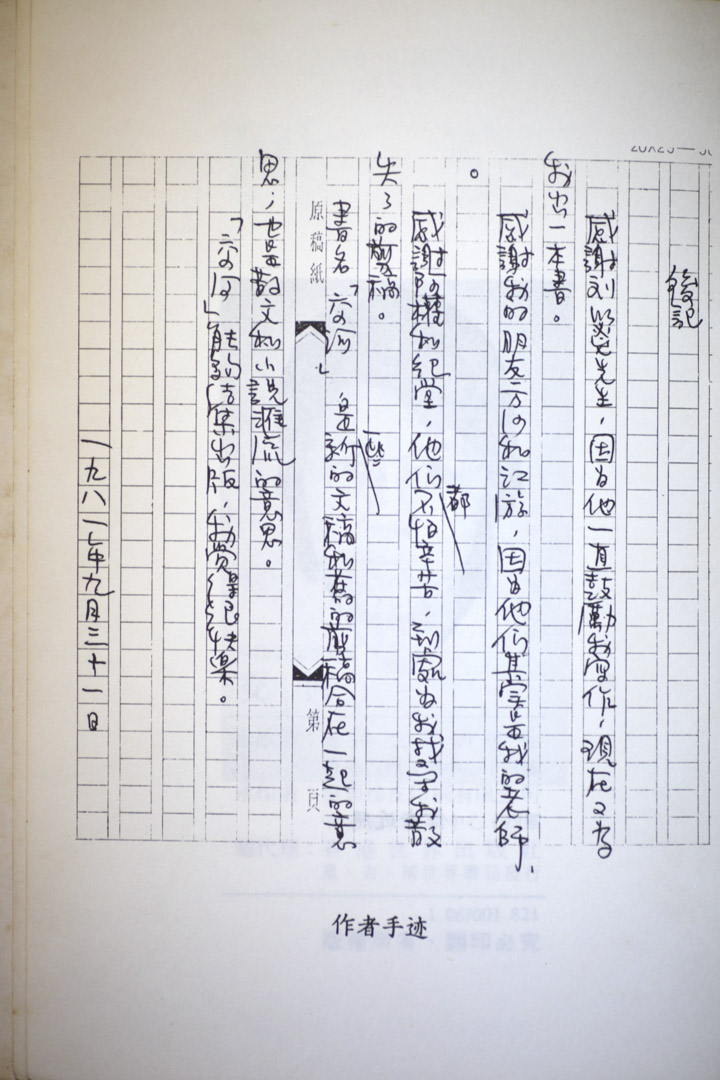 後記
感謝刘以鬯先生，因為他一直鼓勵我写作，現在又為
我出一本書。
感謝我的朋友方河和江游，因為他们其實是我的老師
。
感謝阿權和紀堂，他们都不怕辛苦，到處為我找尋我散
失了的剪稿。
書名「交河」是一些新的文稿和舊的剪稿合在一起的意
思；也是散文和小說滙流的意思。
「交河」能夠結集出版，我覺得很快樂。
一九八一年九月三十一日
原稿紙
第 頁
作者手迹